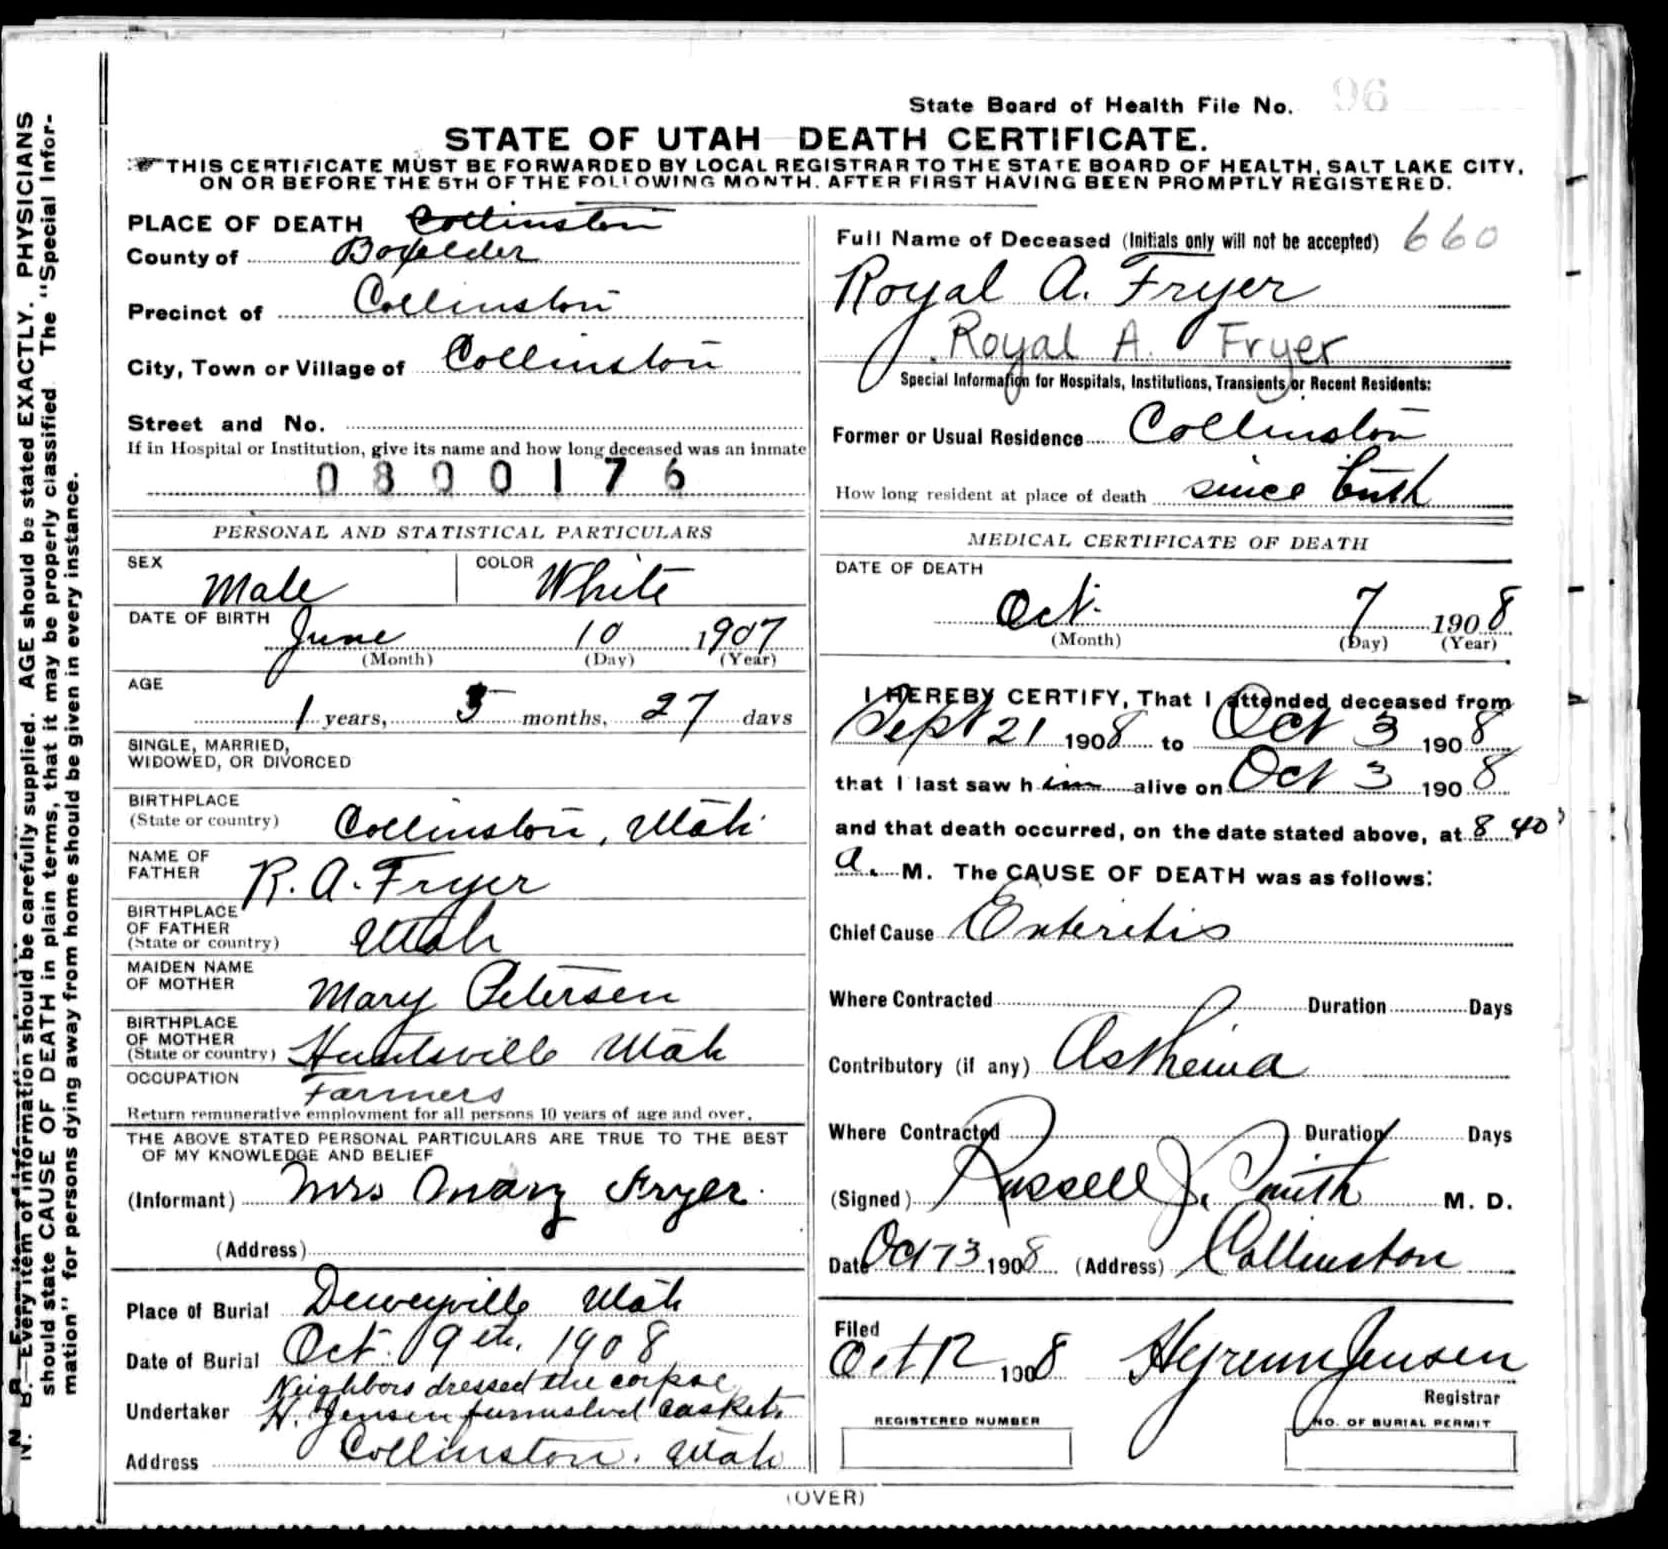 State Board of Health File No. 96
STATE OF UTAH DEATH CERTIFICATE.
THIS CERTIFICATE MUST BE FORWARDED BY LOCAL REGISTRAR TO THE STATE BOARD OF HEALTH, SALT LAKE CITY,
ON OR BEFORE THE 5TH OF THE FOLLOWING MONTH. AFTER FIRST HAVING BEEN PROMPTLY REGISTERED.
PLACE OF DEATH Collinston
County of Boxelder
Precinct of Collinston
City, Town or Village of Collinston
Street and No.
If in Hospital or Institution, give its name and how long deceased was an inmate
0800176
PERSONAL AND STATISTICAL PARTICULARS
SEX Male COLOR White
DATE OF BIRTH June 10 1907
(Month) (Day) (Year)
AGE
1 years, 3 months, 27 days
SINGLE, MARRIED,
WIDOWED, OR DIVORCED
BIRTHPLACE
(State or country) Collinston, Utah
NAME OF
FATHER R. A. Fryer
BIRTHPLACE
OF FATHER
(State or country) Utah
MAIDEN NAME
OF MOTHER Mary Petersen
BIRTHPLACE
OF MOTHER
(State or country) Huntsville Utah
OCCUPATION Farmers
Return remunerative employment for all persons 10 years of age and over.
THE ABOVE STATED PERSONAL PARTICULARS ARE TRUE TO THE BEST
OF MY KNOWLEDGE AND BELIEF
(Informant) Mrs Mary Fryer.
(Address)
Place of Burial Deweyville Utah
Date of Burial Oct. 9th. 1908
Neighbors dressed the corpse
Undertaker H. Jensen furnished casket.
Address Collinston. Utah
Full Name of Deceased (Initials only will not be accepted) 660
Royal A. Fryer
Royal A. Fryer
Special Information for Hospitals, Institutions, Transients or Recent Residents:
Former or Usual Residence Collinston
How long resident at place of death since birth
MEDICAL CERTIFICATE OF DEATH
DATE OF DEATH
Oct. 7 1908
(Month) (Day) (Year)
I HEREBY CERTIFY, That I attended deceased from
Sept 21 1908 to Oct 3 1908
that I last saw him alive on Oct 3 1908
and that death occurred, on the date stated above, at 8 40
a. M. The CAUSE OF DEATH was as follows:
Chief Cause Enteritis
Where Contracted Duration Days
Contributory (if any) Asthenia
Where Contracted Duration Days
(Signed) Russell J. Smith M. D.
Date Oct 1908 (Address) Collinston
Filed
Oct 12 1908 Hyrum Jensen
Registrar
REGISTERED NUMBER NO. OF BURIAL PERMIT
(OVER)
N. B.—Every item of information should be carefully supplied. AGE should be stated EXACTLY. PHYSICIANS
should state CAUSE OF DEATH in plain terms, that it may be properly classified The "Special Infor-
mation" for persons dying away from home should be given in every instance.